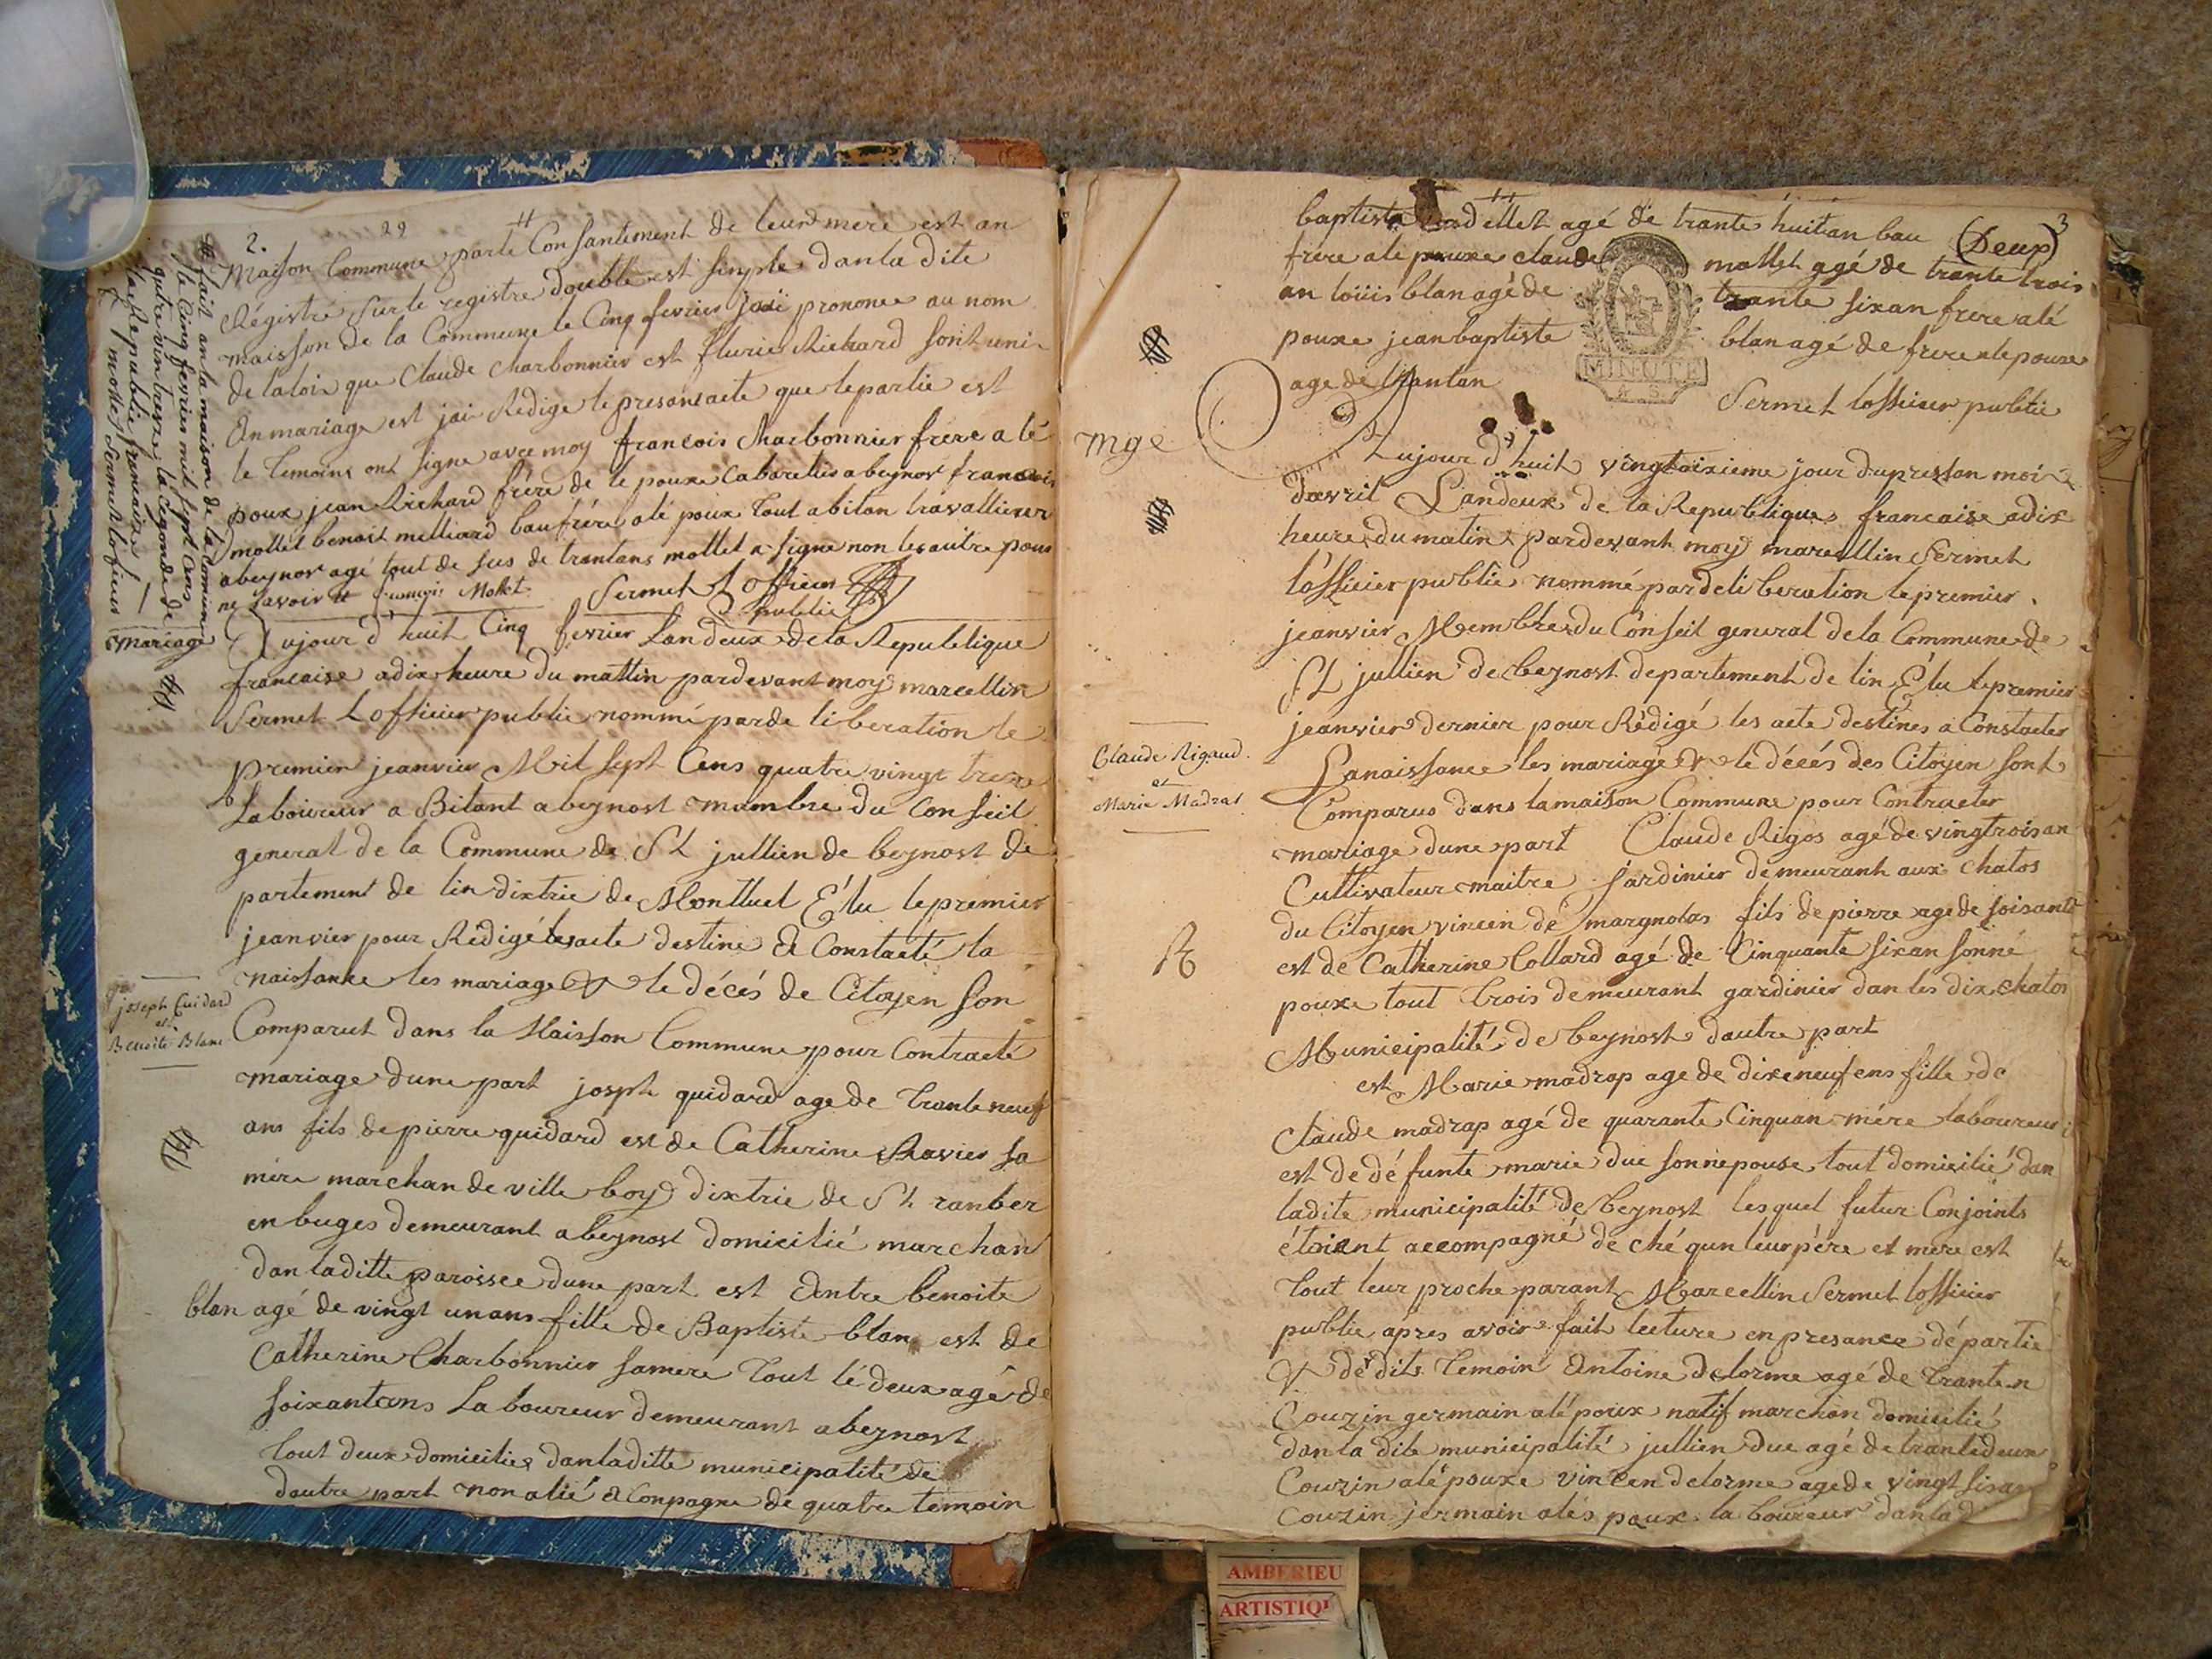 2.
29
Maison Commune parle Consantement de leur mere est an
Régistré sur le registre double est simple dan la dite
maisson de la Commune le Cinq fevrier jaai prononce au nom
de la loi que Claude Charbonnier est flurie Richard sont uni
En mariage est jai Redige le presansacte que le partie est
le temoins ont signe avec moy francois Charbonnier frere a lé
poux jean Richard frére de le pouxe Cabaretier a beynost francois
mollet benoit milliard baufrére alé poux tout abitan travallieur
abeynost agé tout de sus de trantans mollet a signe non les autre pour
ne savoir françois Mollet Sermet Lofficier
publie
fait an la maison de la Commune
le Cinq fevrier mil sept Cens
quatre vin tresze la Cegonde de
la Republie francaise
mollet Sermet lofisier
Mariage
aujour d'huit Cinq fevrier Landeux de la Republique
francaise adix heure du mattin pardevant moy marcellin
Sermet Lofficier publie nommé parde liberation le
premier jeanvier Mil sept Cens quatre vingt treze
Laboureur a Bitant abeynost mambre du Conseil
general de la Commune de St jullien de beynost de
partement de lin dixtrie de Montluel Élu le premier
jeanvier pour Rédigé les acte destine a Constacté la
naissanse les mariage & le décés de Citoyen son
joseph Guidard
et
Benoite Blanc
Comparut dans la Maisson Commune pour Contracté
mariage dune part joseph quidard age de trante neuf
ans fils de pierre quidard est de Catherine Ravier sa
mére marchan de ville boy dixtrie de St. ranber
en buges demeurant abeynost domicilié marchan
dan laditte paroisse dune part est Antre benoite
blan agé de vingt unans fille de Baptiste blan est de
Catherine Charbonnier samere tout lé deux agé de
soixantans Laboureur demeurant abeynost
tout deux domicilies dan laditte municipatité de
dautre part non alié a Conpagne de quatre temoin
3
(Deux)
baptiste agé de trante huitan bau
frere ale pouxe claude mollet agé de trante trois
an loüis blan agé de trante sixan frere alé
pouxe jean baptiste blan agé de frere ale pouxe
MINUTE
age de trantan Sermet lofficier publie
mge
Aujour d'huit vingtoixieme jour dupressan moi
davril Landeux de la Republique francaise adix
heure du matin pardevant moy marcellin Sermet
l'officier publie nommé pardeliberation le premier
jeanvier Membre du Conseil general de la Commune de
St jullien de beynost departement de lin Élu le premier
jeanvier dernier pour Rédigé les acte destines a Constacter
Claude Rigaud.
et
Marie Madras
Lanaissance les mariage & le décés des Citoyen sont
Comparus dans lamaison Commune pour Contracter
mariage dune part Claude Rigos agé de vingtroisan
Cultivateur maitre jardinier demeurant aux chatos
du Citoyen vincen de margnolas fils de pierre age de soisante
est de Catherine Collard agé de Cinquante sixan sonné
pouxe tout trois demeurant gardinier dan les dix chatos
Municipalité de beynost dautre part
est Marie madrap age de dixeneuf ens fille de
Claude madrap agé de quarante Cinquan mére laboureur
est de dé funte marie due sonnepouse tout domicilié dan
ladite municipalité de beynost lesquel futur Conjoints
étoient accompagné de ché qun leur père et mere est
tout leur proche parant Marcellin Sermet lofficier
publie apres avoir fait lecture en presance dé partie
& dé dits temoin Antoine delorme agé de trante-n
Couzin germain alé poux natif marchan domicilié
dan la dite municipalité jullien due agé de trantedeux
Couzin alé pouxe vincen delorme age de vingt sixan
Couzin jermain alés poux. la boureur dan la d
AMBERIEU
ARTISTIQU